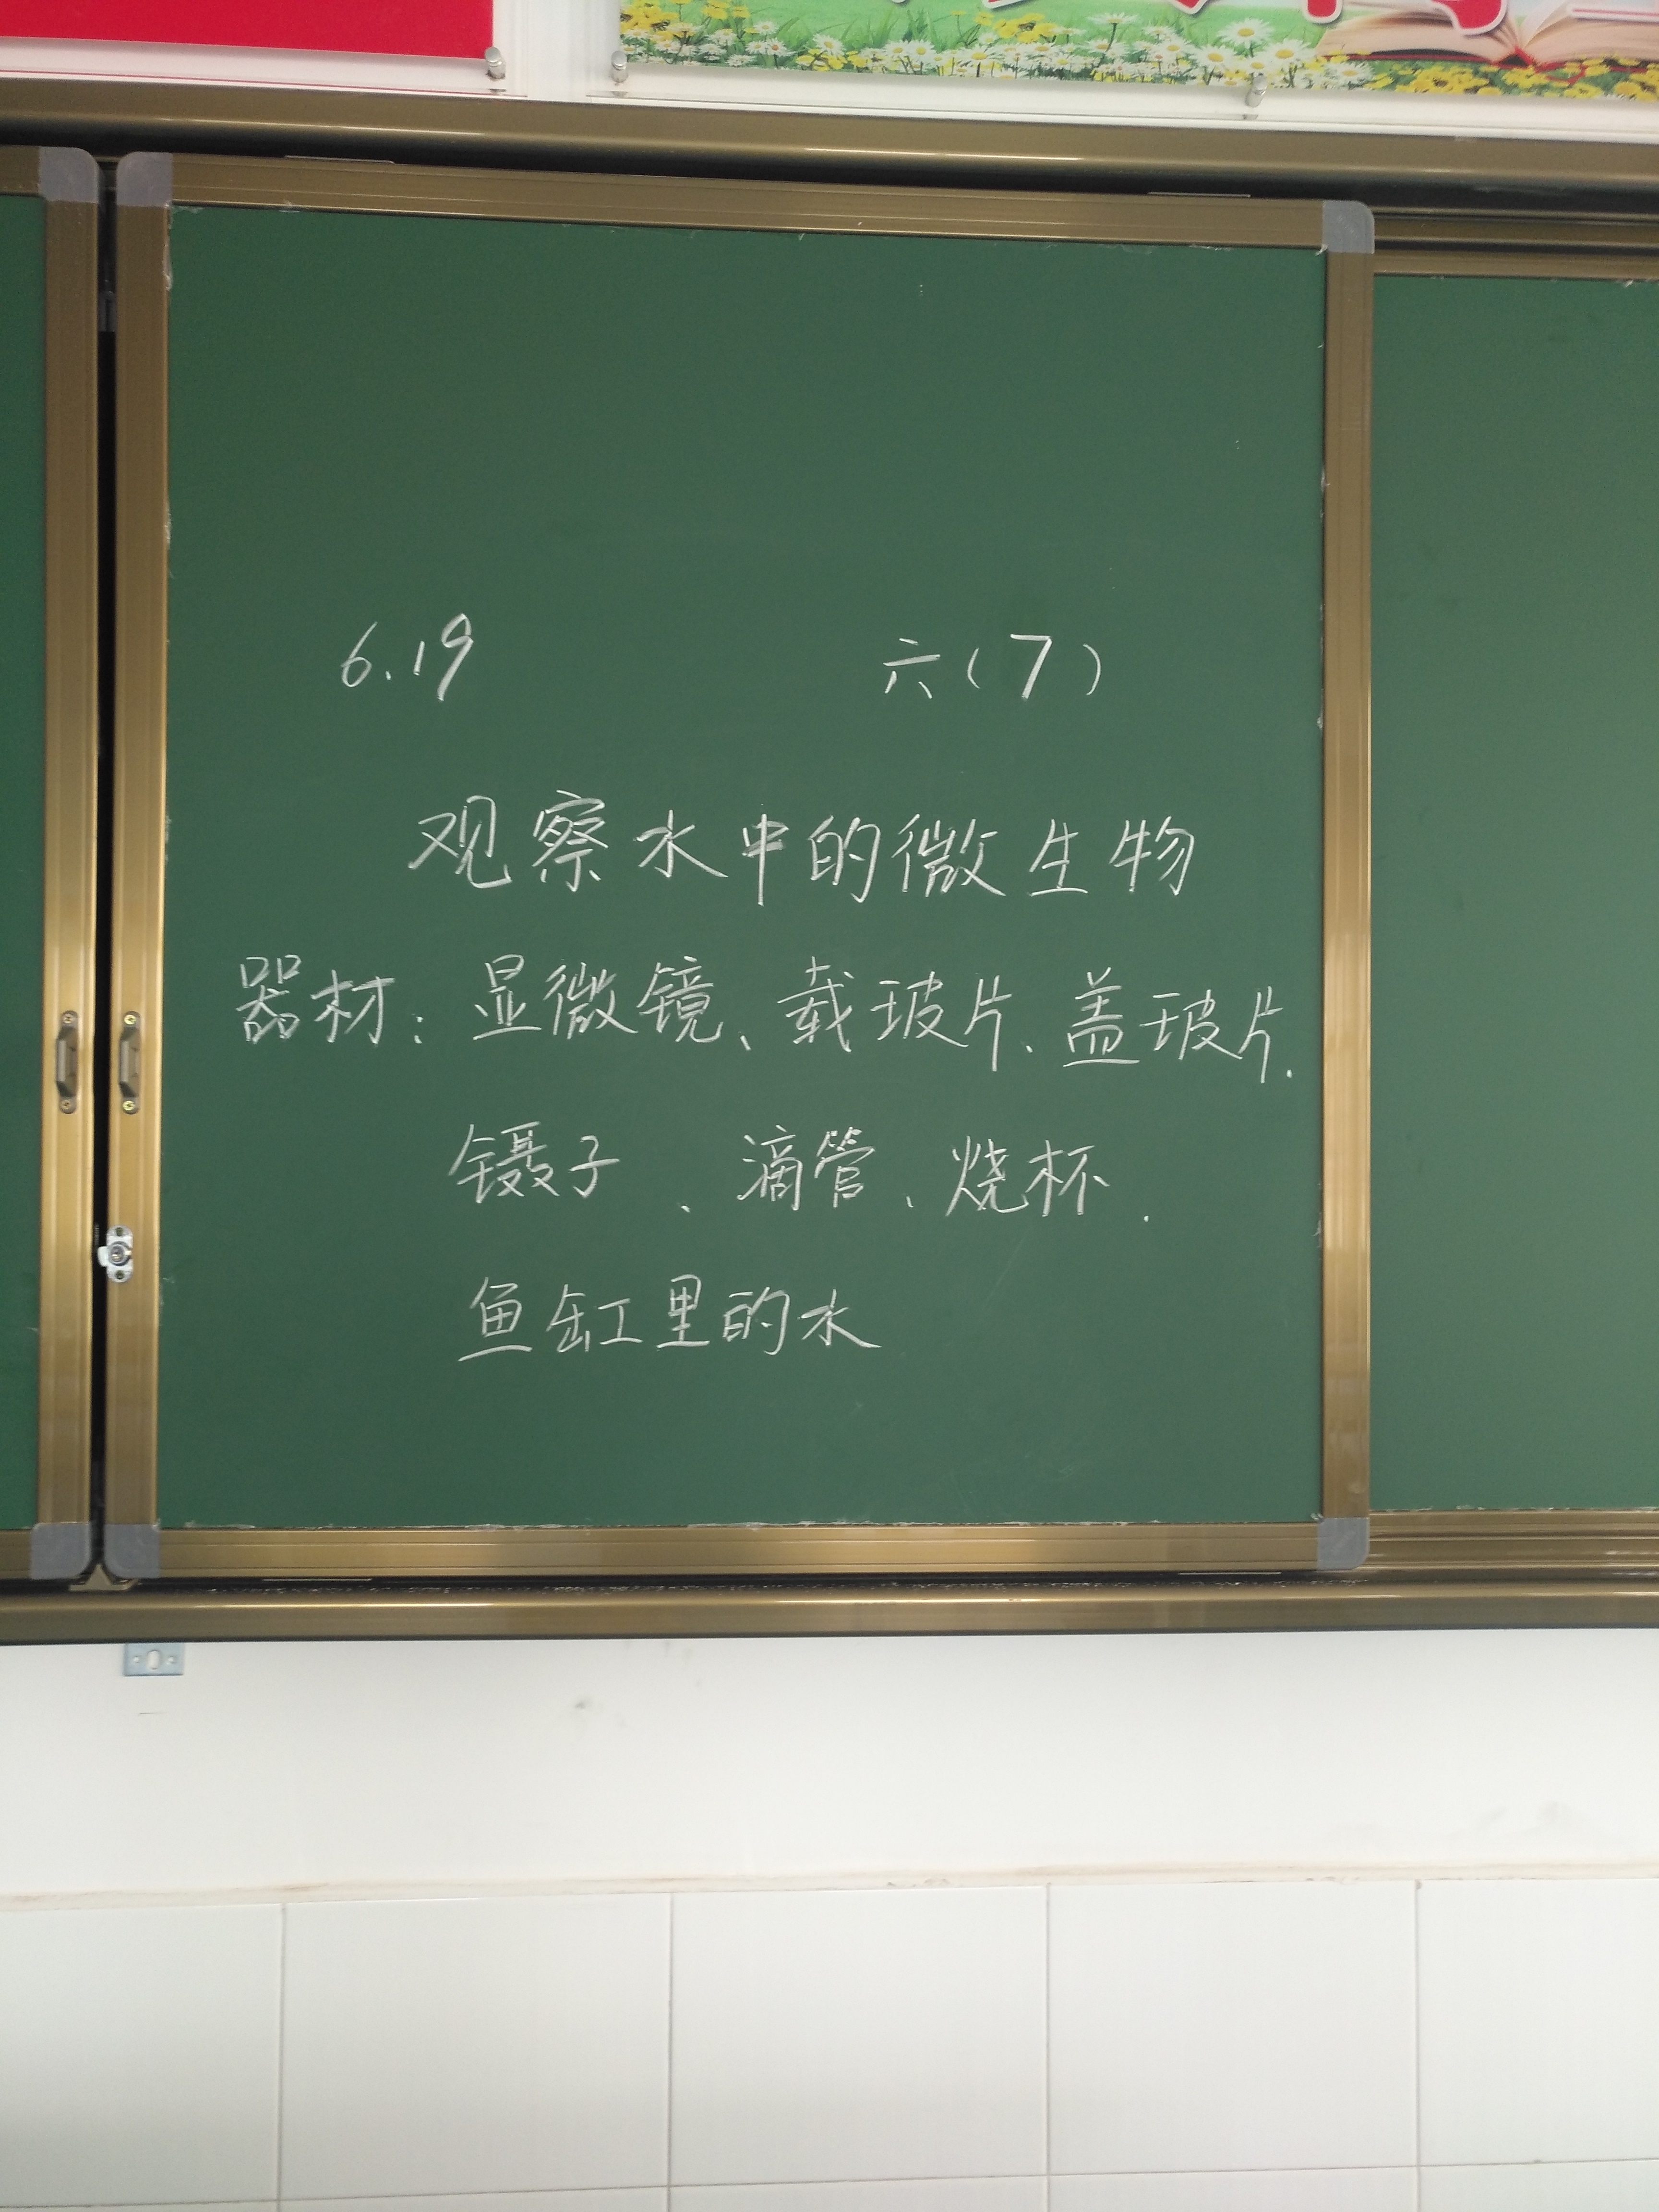 6.19 六(7)
观察水中的微生物
器材:显微镜、载玻片、盖玻片.
镊子、滴管、烧杯.
鱼缸里的水